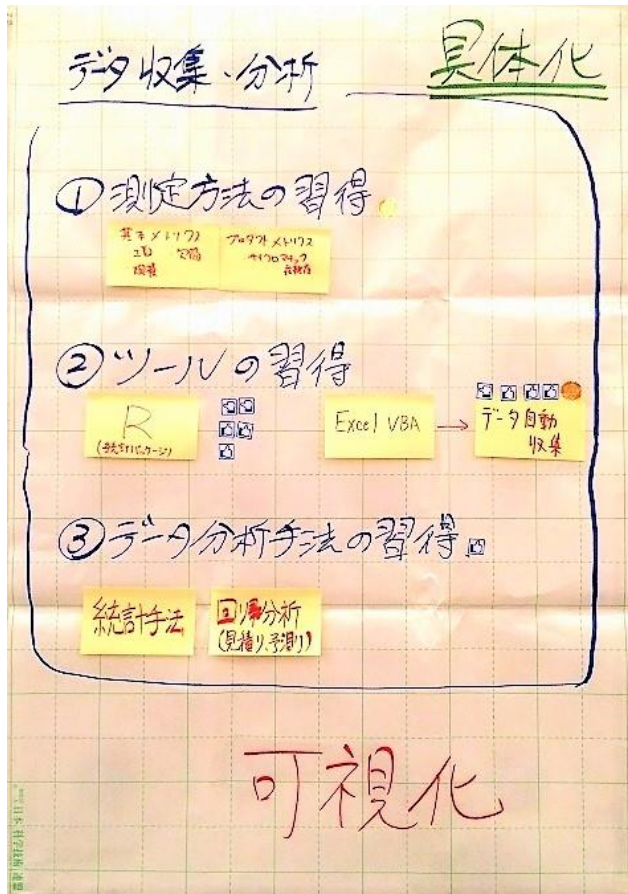 データ収集・分析
具体化
①測定方法の習得
基本メトリクス
工数 欠陥
規模
プロダクトメトリクス
サイクロマチック
複雑度
②ツールの習得
R
(統計パッケージ)
Excel VBA
→
データ自動
収集
③データ分析手法の習得
統計手法
回帰分析
(見積り、予測)
可視化
日本科学技術連盟